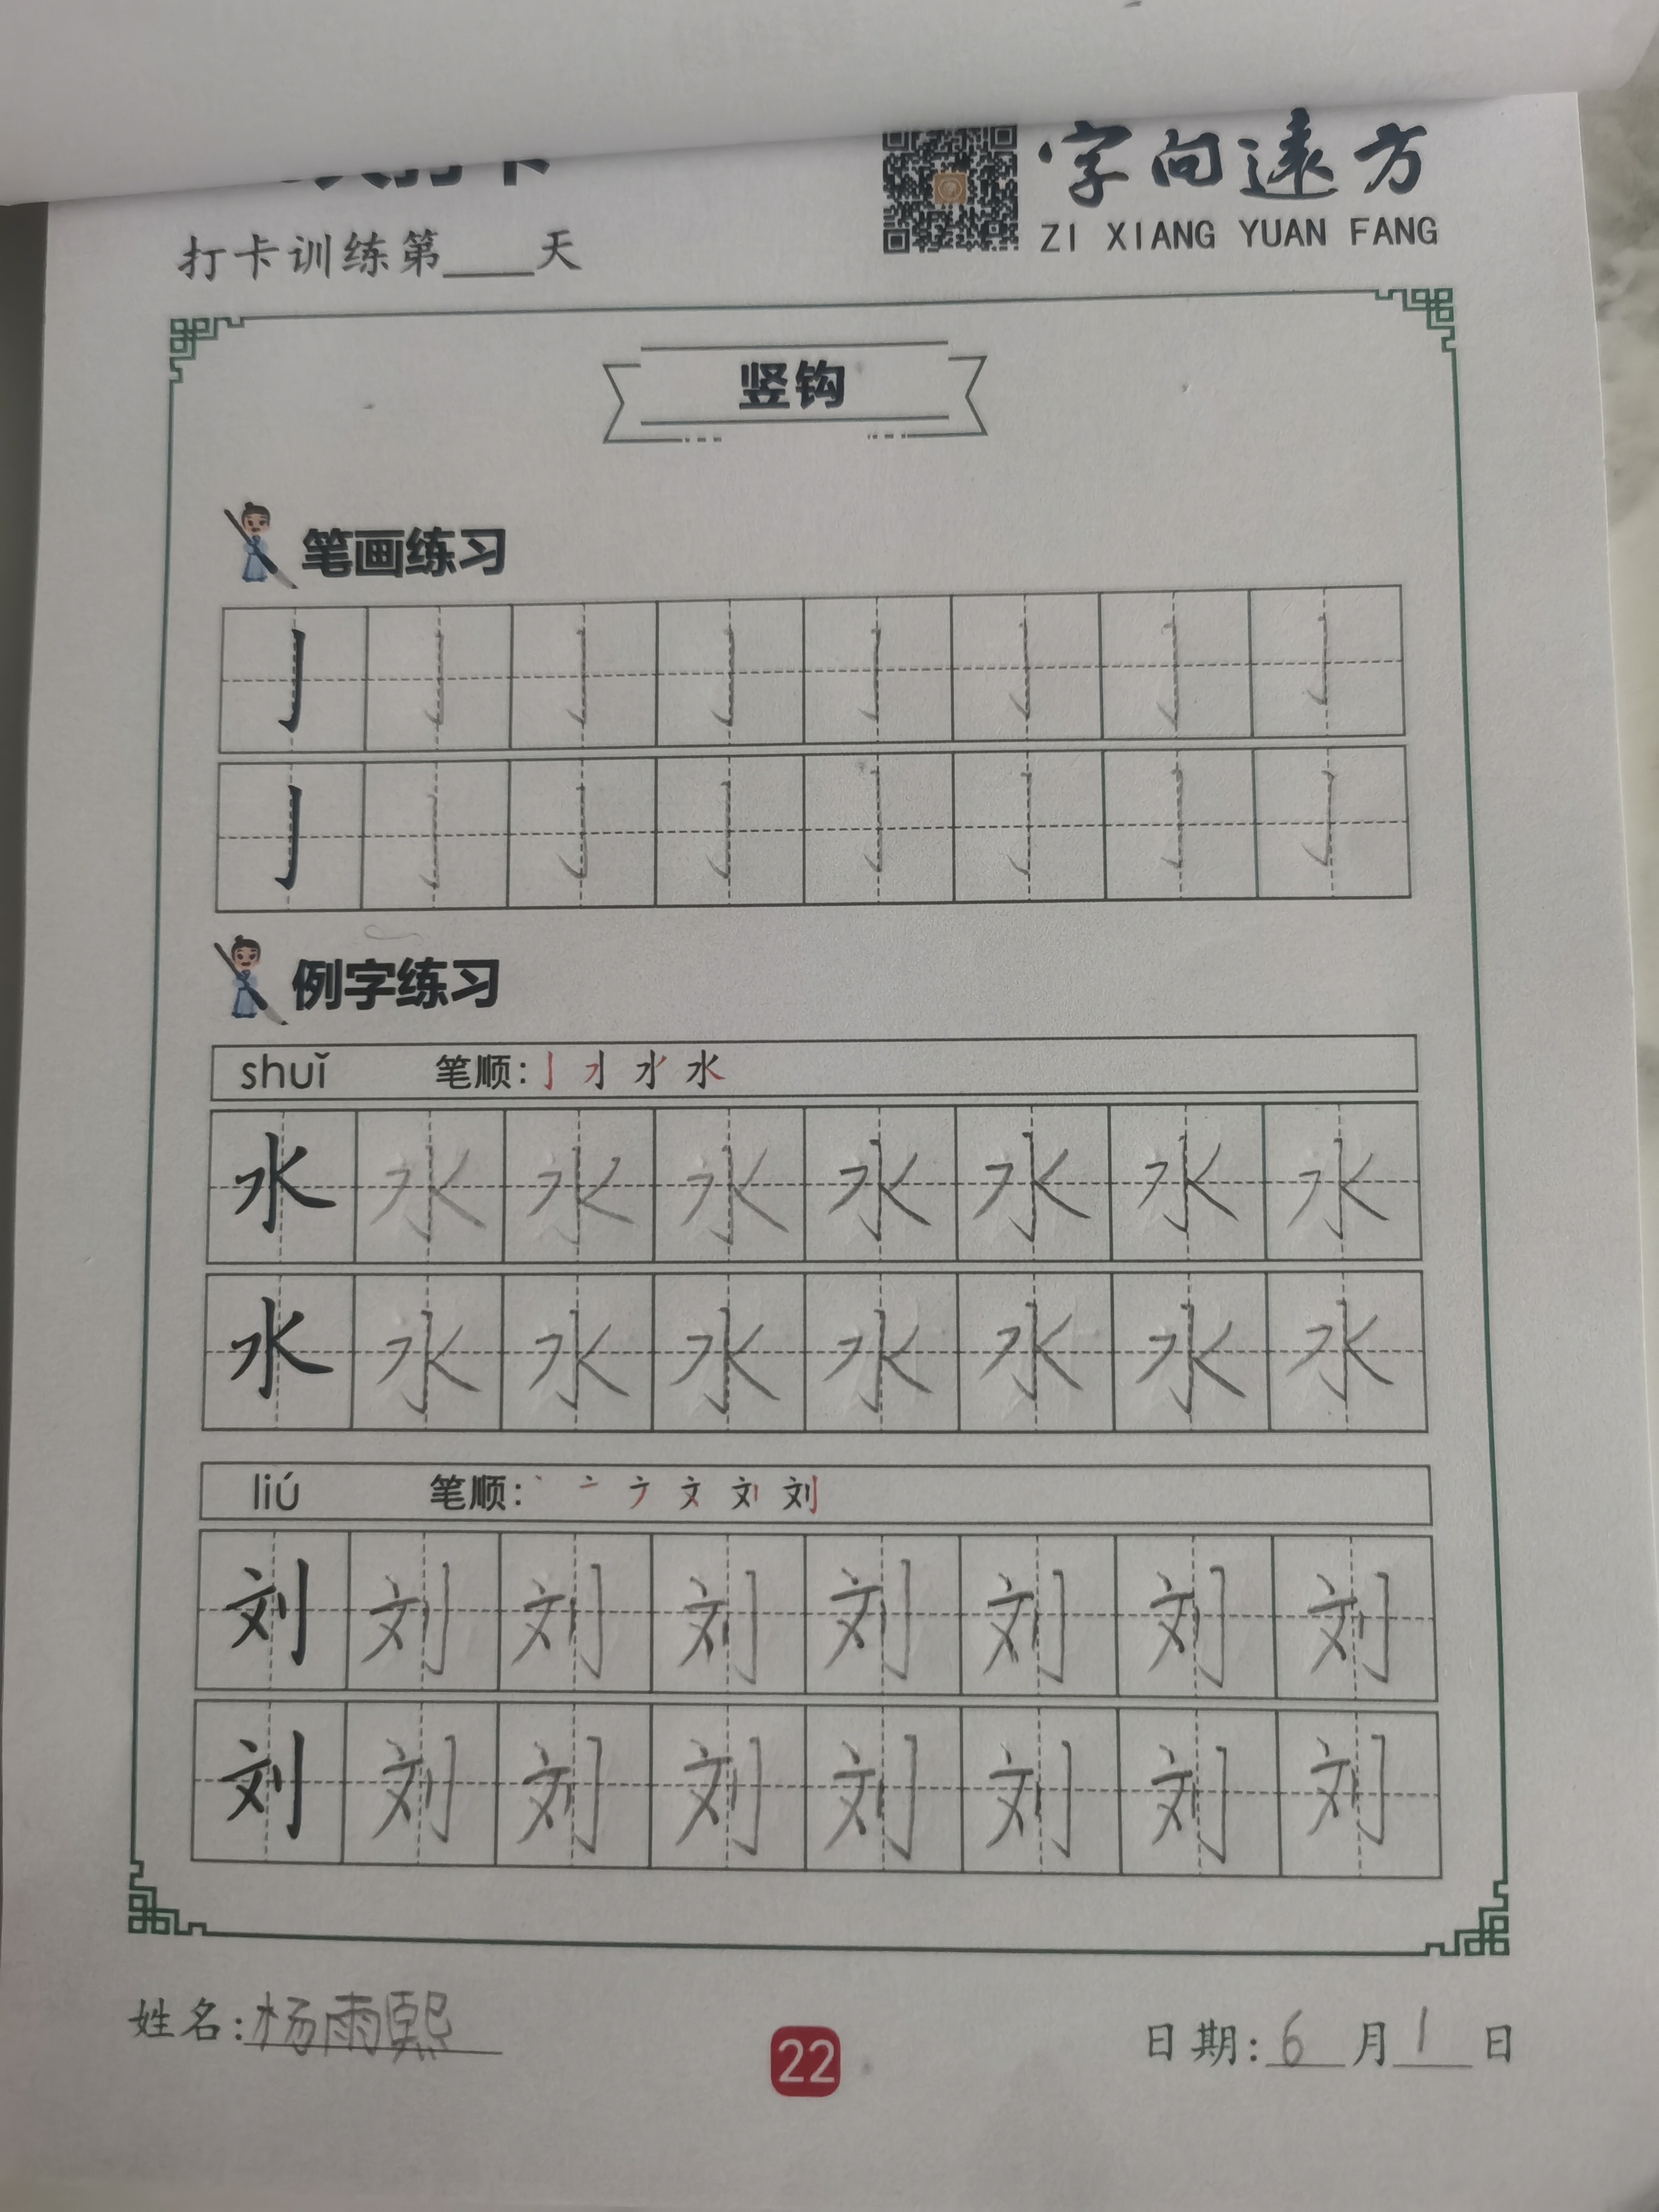 字向遠方
ZI XIANG YUAN FANG
打卡训练第____天
竖钩
笔画练习
亅 亅 亅 亅 亅 亅 亅 亅
亅 亅 亅 亅 亅 亅 亅 亅
例字练习
shuǐ 笔顺:
水 水 水 水 水 水 水 水
水 水 水 水 水 水 水 水
liú 笔顺:
刘 刘 刘 刘 刘 刘 刘 刘
刘 刘 刘 刘 刘 刘 刘 刘
姓名:杨雨熙
22
日期:6月1日